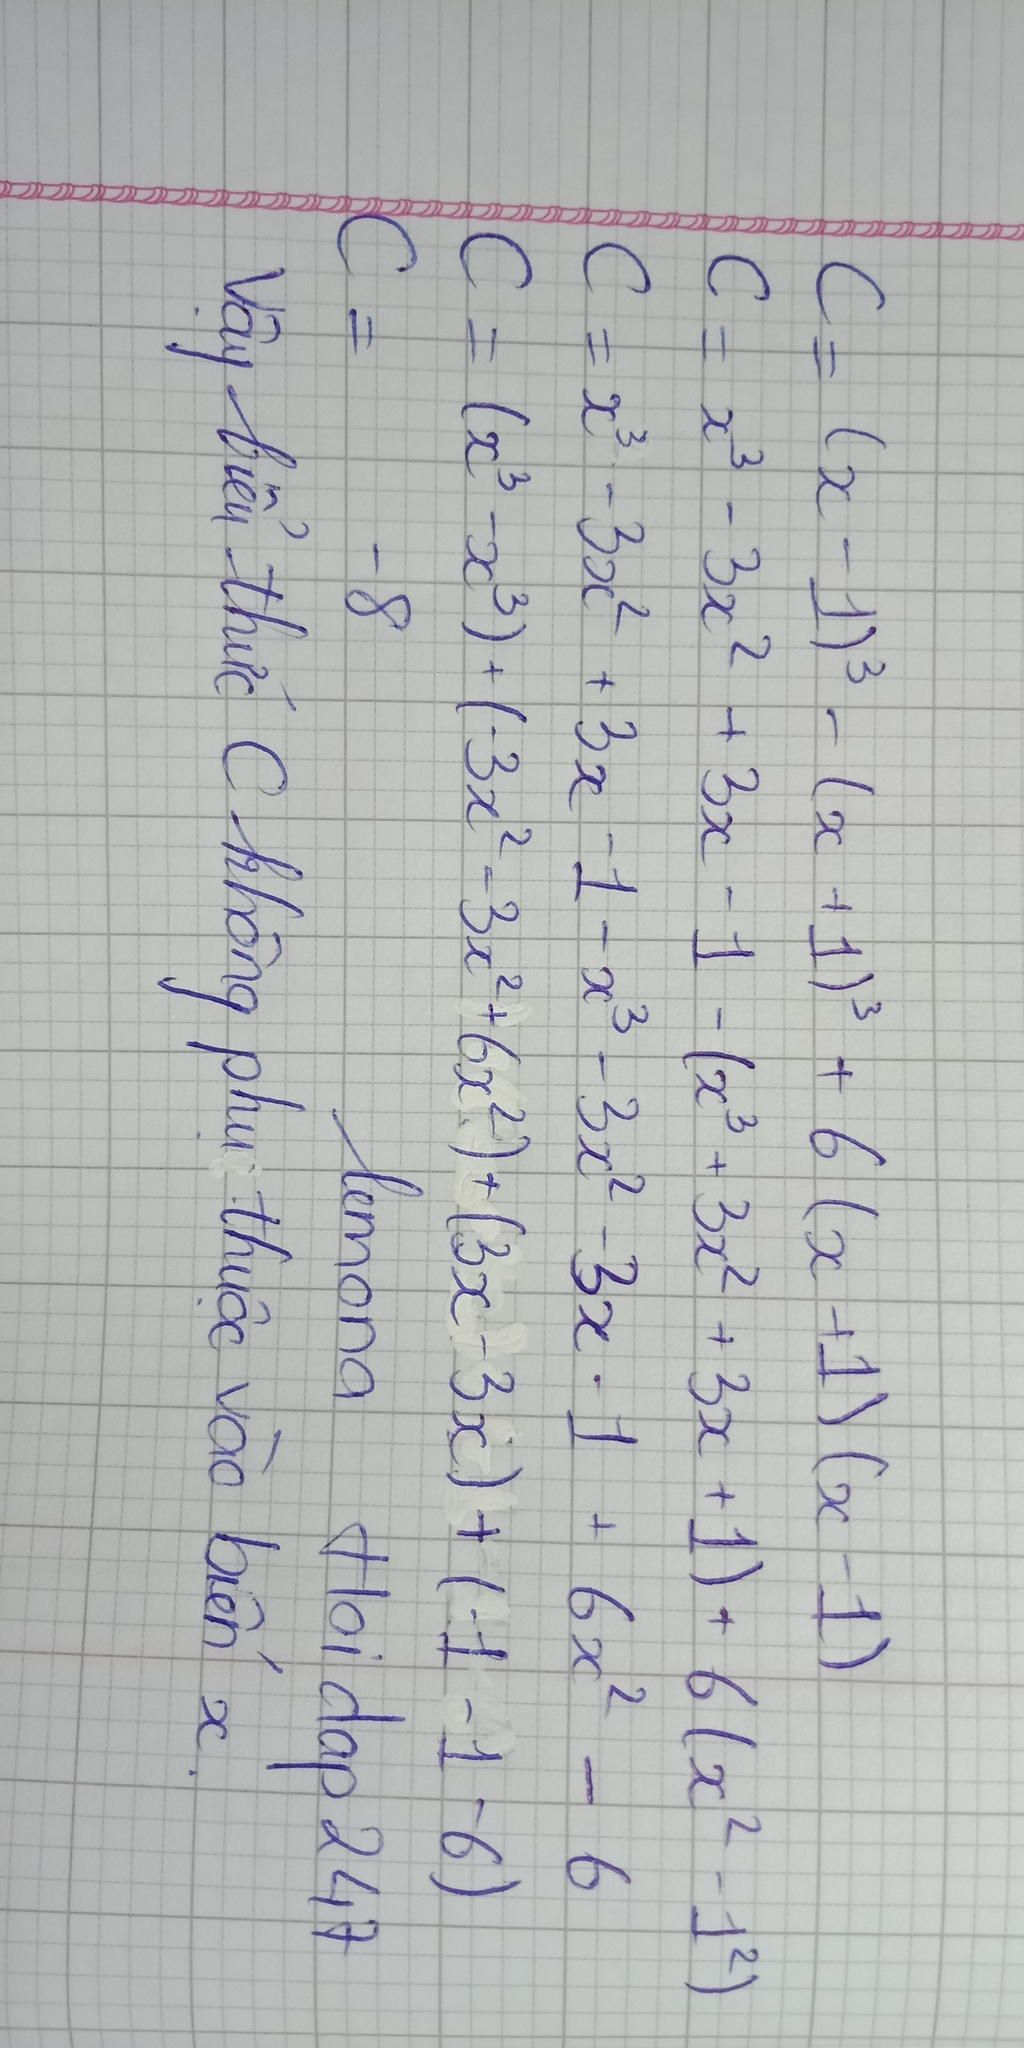 C = (x - 1)³ - (x + 1)³ + 6 (x + 1) (x - 1)
C = x³ - 3x² + 3x - 1 - (x³ + 3x² + 3x + 1) + 6 (x² - 1²)
C = x³ - 3x² + 3x - 1 - x³ - 3x² - 3x - 1 + 6x² - 6
C = (x³ - x³) + (-3x² - 3x² + 6x²) + (3x - 3x) + (-1 - 1 - 6)
C = -8 lemona Hoi dap 247
Vậy biểu thức C không phụ thuộc vào biến x.